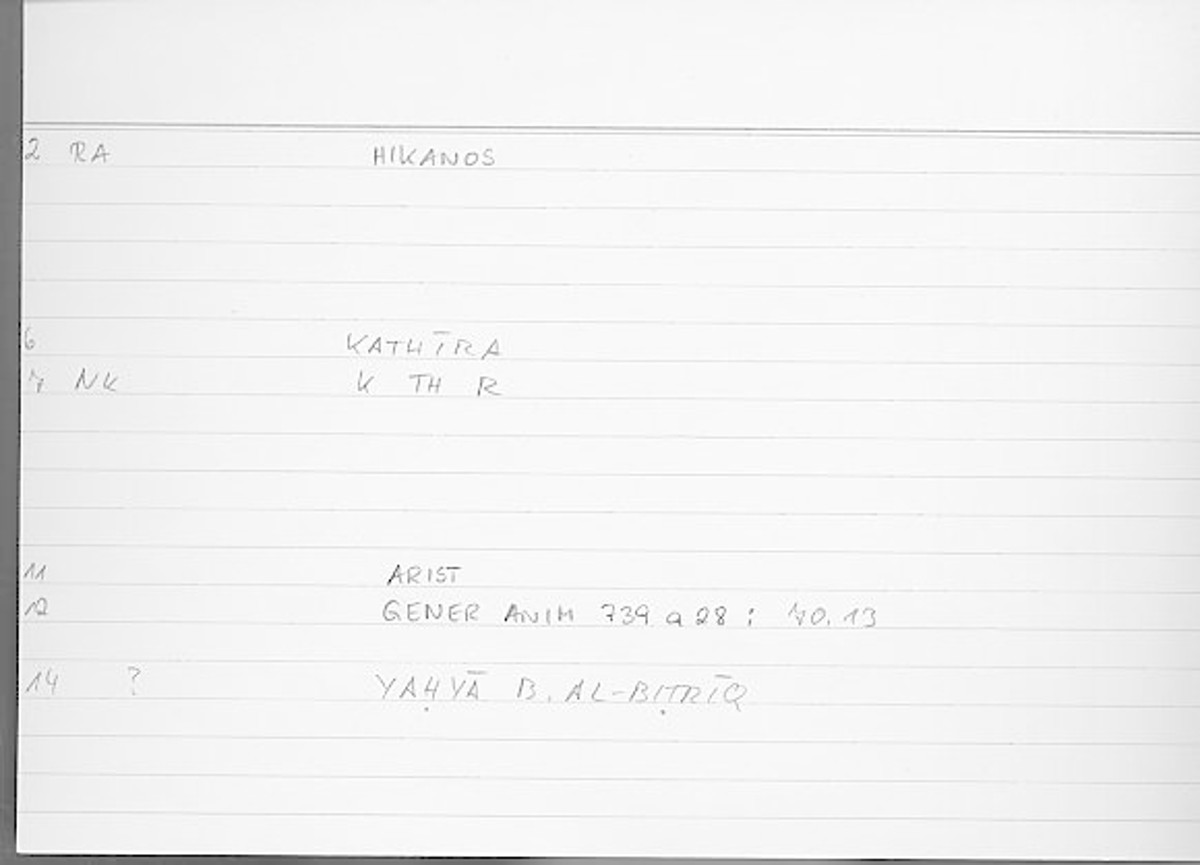 2 RA HIKANOS
6 KATHĪRA
7 NK K TH R
11 ARIST
12 GENER ANIM 739 a 28 : 70.13
14 ? YAḤYĀ B. AL-BIṬRĪQ